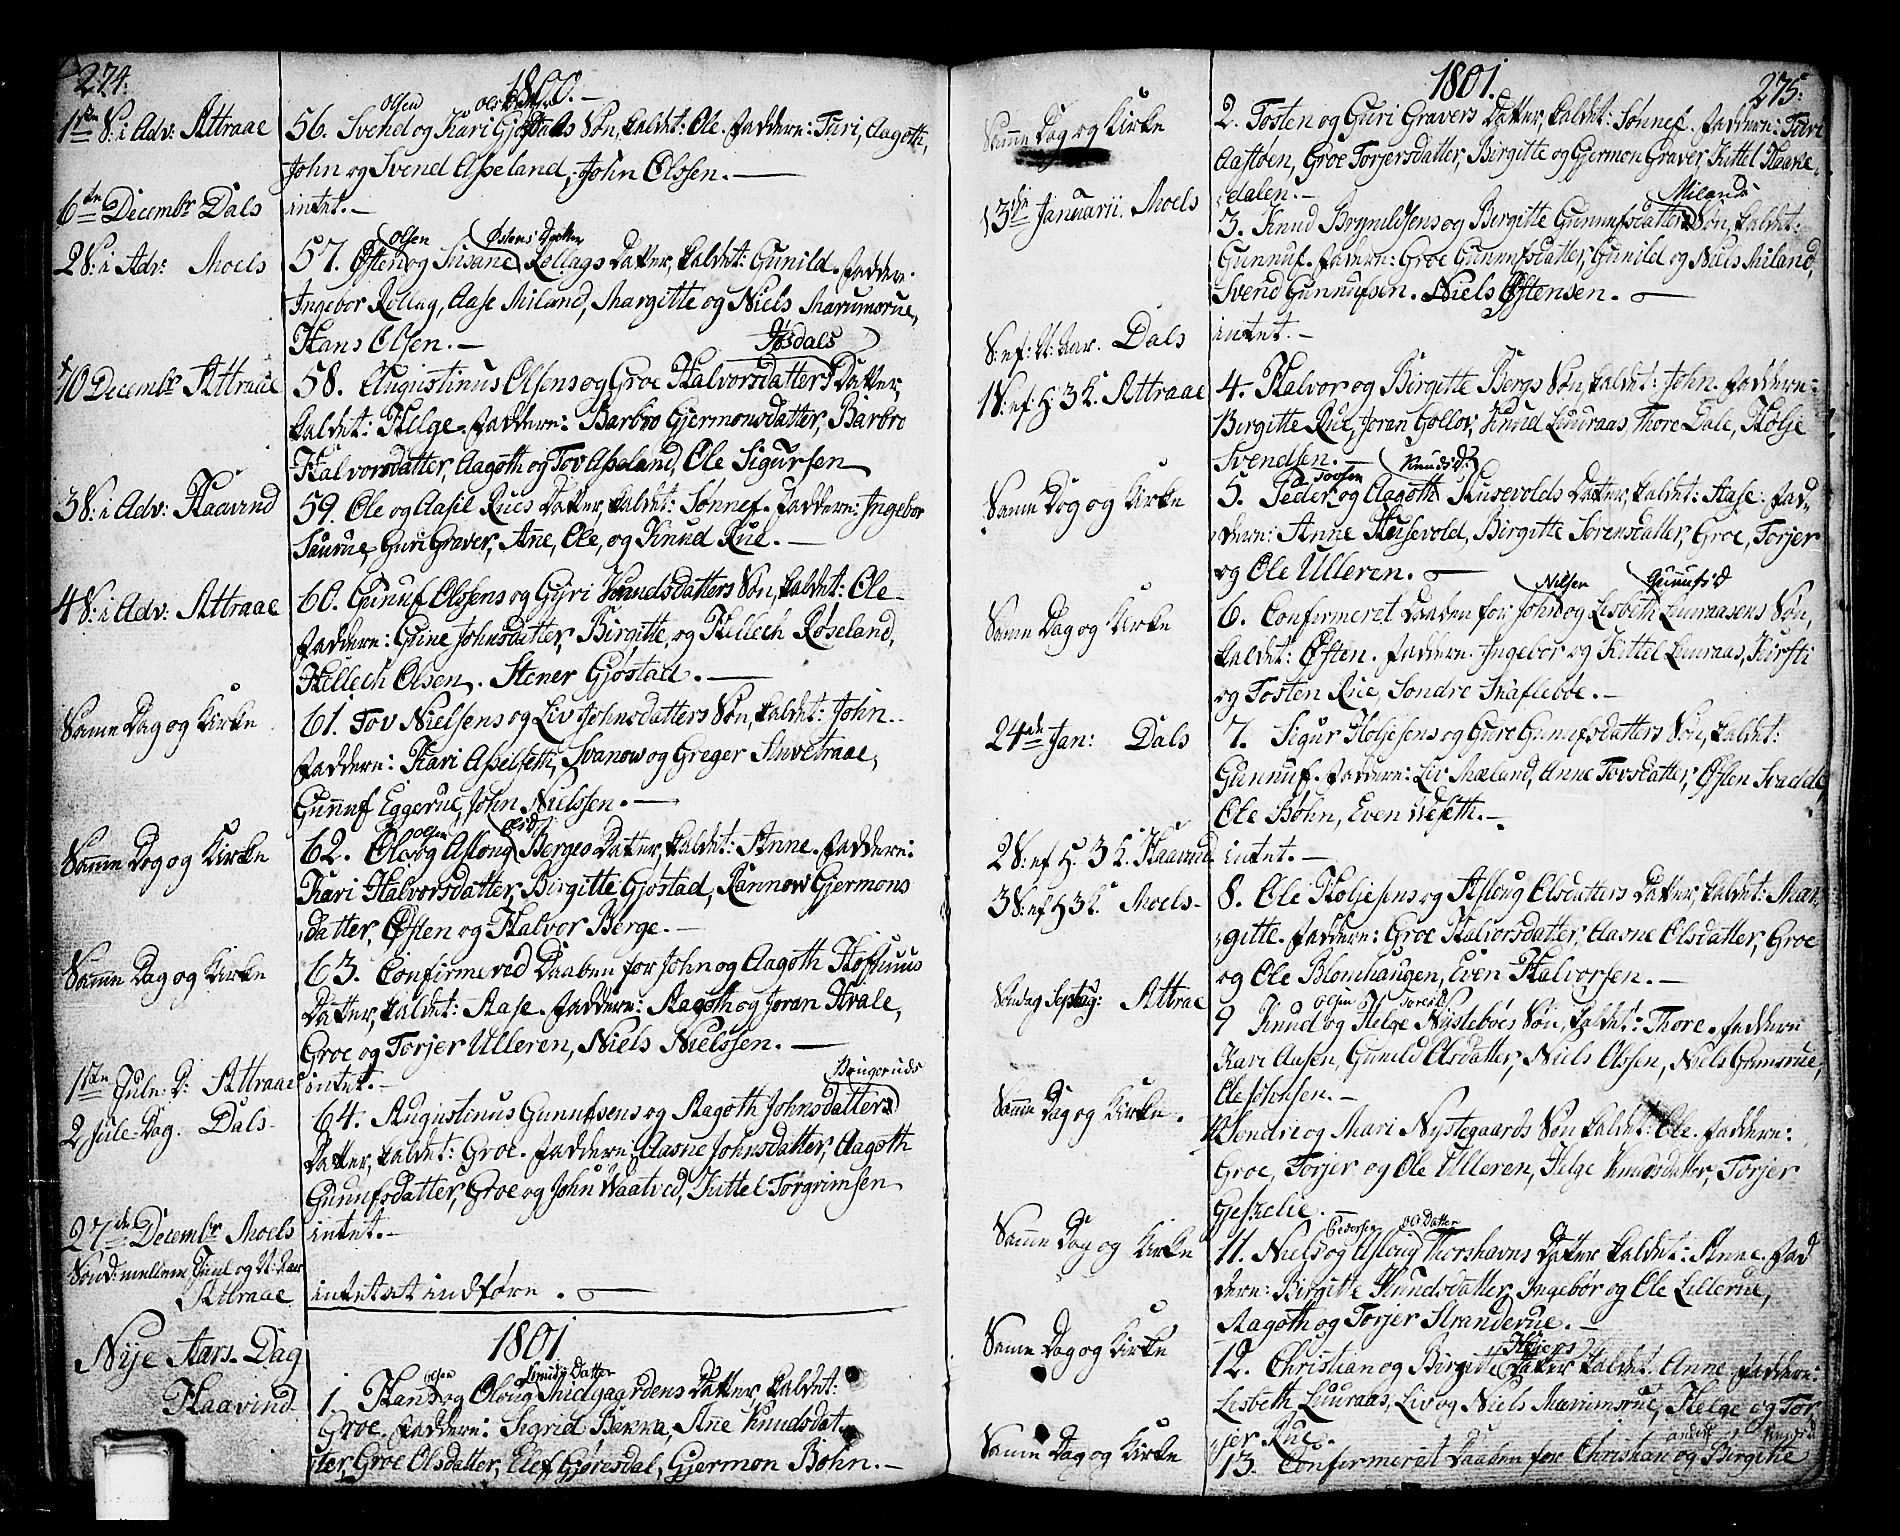 274.
1800.
1ste S: i Adv: Attraae
Olsen Olsdatter
56. Svend og Kari Gjøstads Søn, kaldet: Ole. Faddere: Turi, Aagoth,
John og Svend Aasland, John Olssen.
6te Decembr Dals
intet.
2 S: i Adv: Moels
Olsen Østens Datter
57. Østen og Susane Rollags Datter, kaldet: Gunild. Faddere:
Ingebor Rollag, Aase Miland, Margitte og Niels Marumsrue,
Hans Olsen.
Jøsdals
10 Decembr Attraae
58. Augustinus Olsens og Groe Halvorsdatters Datter,
kaldet: Helge. Faddere: Barbro Gjermonsdatter, Barbro
Halvorsdatter, Aagoth og Tov Aasland, Ole Sigursen
3 S: i Adv: Haavind
59. Ole og Aasil Rues Datter, kaldet: Sønnef. Faddere: Ingebor
Saurue, Guri Graver, Ane, Ole, og Knud Rue.
4 S: i Adv: Attraae
60. Gunuf Olssens og Gyri Knudsdatters Søn, kaldet: Ole.
Faddere: Gune Johnsdatter, Birgitte og Hellech Røseland,
Hellech Olsen. Stener Gjøstad.
Samme Dag og Kirke
61. Tov Nielsens og Liv Johnsdatters Søn, kaldet: John.
Faddere: Kari Asselseth, Svanow og Greger
Gunnuf Eggerue, John Nielssen.
Samme Dag og Kirke
Olsen
62. Ole og Asloug Berges Datter, kaldet: Anne. Faddere:
Kari Halvorsdatter, Birgitte Gjøstad, Rannow Gjermons
datter, Østen og Halvor Berge.
Samme Dag og Kirke
63. Confirmered Daaben for John og Aagoth
Datter, kaldet: Aase. Faddere: Aagoth og Joran Hvale,
Groe og Torjer Ulleren, Niels Nielssen.
1ste Jule D: Attraae
intet.
Bringeruds
2 Jule-Dag. Dals
64. Augustinus Gunufsens og Aagoth Johnsdatters
Datter, kaldet: Groe. Faddere: Aasne Johnsdatter, Aagoth
Gunufsdatter, Groe og John Waatved, Kittel Torgrimsen
27de Decembr Moels
intet.
Sønd: mellem Juul og N: Aar
Attraae
intet at indføre.
1801.
Nye Aars-Dag
Haavind
Olsen Knuds Datter
1. Hans og Oloug Datter, kaldet:
Groe. Faddere: Sigrid Bakka, Ane Knudsdat-
ter, Groe Olsdatter, Elef Gjøresdal, Gjermon Bøhn.
1801.
275.
Samme Dag og Kirke
2. Tosten og Guri Gravers Datter, kaldet: Sønnef. Faddere: Turi
Aastøen, Groe Torjersdatter, Birgitte og Gjermon Graver, Kittel Haake-
dalen.
13de Januarii. Moels
Milands
3. Knud Brynuldsens og Birgitte Gunnufsdatters Søn, kaldet:
Gunnuf. Faddere: Groe Gunnufsdatter, Gunild og Niels Miland,
Svend Gunnufsen. Niels Østensen.
S: ef: N: Aar. Dals
intet.
1 S: ef: H: 3 K. Attraae
4. Halvor og Birgitte Bergs Søn, kaldet: John. Faddere:
Birgitte Rue, Joran Gøllov, Knud Luuraas, Thore Dale, Holje
Svendsen.
Samme Dag og Kirke
Knudsd:
5. Peder og Aagoth Husevolds Datter, kaldet: Aase. Fad-
dere: Anne Husevold, Birgitte Sørensdatter, Groe, Torjer
og Ole Ulleren.
Samme Dag og Kirke
Nilsen Gunufsd
6. Confirmeret Daaben for John og Lisbeth Luuraasens Søn,
kaldet: Østen. Faddere: Ingebor og Kittel Luuraas, Kirsti
og Tosten Rue, Sondre Skaflebøe.
24de Jan: Dals
7. Sigur Holjesens og Gure Gunufsdatters Søn, kaldet:
Gunnuf. Faddere: Liv Mæland, Anne Tovsdatter, Østen Svadde,
Ole Bøhn, Even Weseth.
2 S: ef H. 3 K. Haavind
intet.
3 S: ef H 3 K. Moels
8. Ole Holjesens og Asloug Olsdatters Datter, kaldet: Mar-
gitte. Faddere: Groe Halvorsdatter, Aasne Olsdatter, Groe
og Ole Blomhaugen, Even Halvorsen.
Søndag Septuag: Attrae
Olsen Toresd
9 Knud og Helge Nystebøes Søn, kaldet: Thore. Faddere
Kari Aasen, Gunild Olsdatter, Niels Olssen, Niels Gamsrue,
Ole Johnsen.
Samme Dag og Kirke.
10 Sondre og Mari Nystegaards Søn kaldet: Ole. Faddere:
Groe, Torjer og Ole Ulleren, Helge Knudsdatter, Torjer
Gjeskelie.
Samme Dag og Kirke
Pedersen Ols Datter
11. Niels og Asloug Thorshavns Datter kaldet: Anne. Fad
dere: Birgitte Knudsdatter, Ingebør og Ole Lillerue,
Aagoth og Torjer Stranderue.
Samme Dag og Kirke
12. Christian og Birgitte Datter kaldet Anne. Faddere:
Lisbeth Luuraas, Liv og Niels Marumsrue, Helge og Tor
jer Rue.
Samme Dag og Kirke
13. Confirmeret Daaben for Christian og Birgitte